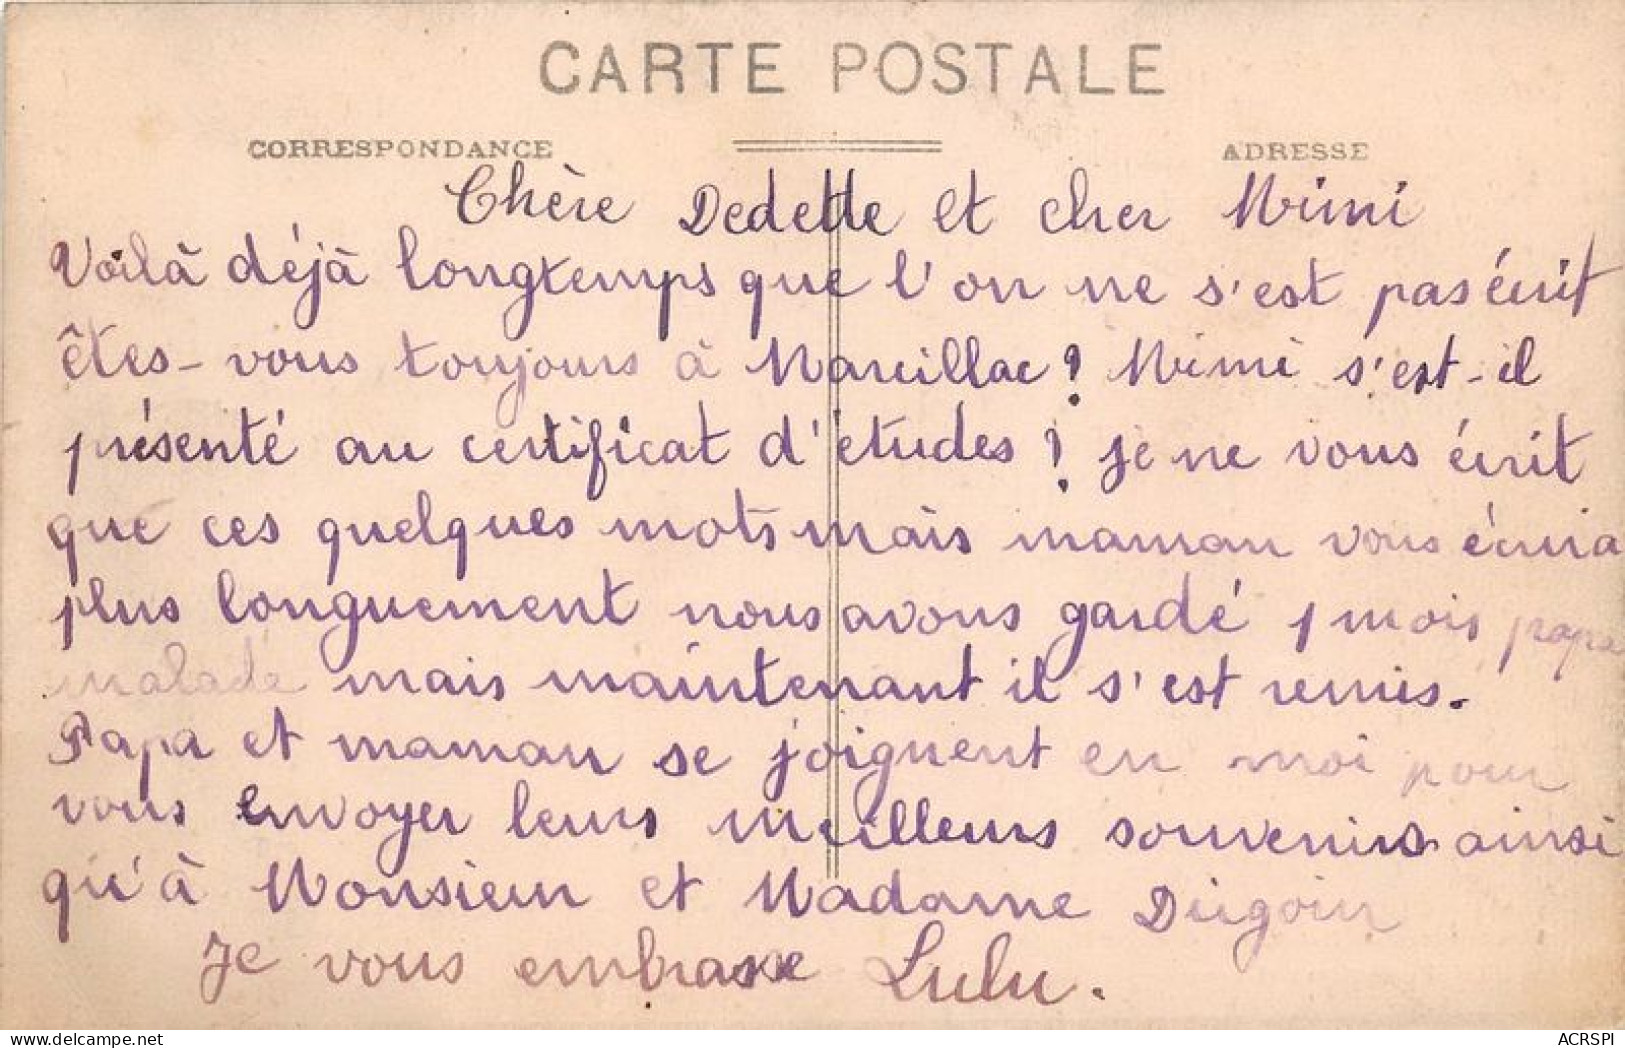 CARTE POSTALE
CORRESPONDANCE ADRESSE
Chère Dedette et cher Mimi
Voilà déjà longtemps que l'on ne s'est pas écrit
êtes-vous toujours à Marcillac ? Mimi s'est-il
présenté au certificat d'études ? Je ne vous écrit
que ces quelques mots mais maman vous écrira
plus longuement nous avons gardé 1 mois papa
malade mais maintenant il s'est remis.
Papa et maman se joignent en moi pour
vous envoyer leurs meilleurs souvenirs ainsi
qu'à Monsieur et Madame
Je vous embrasse Lulu.
delcampe.net
ACRSPI